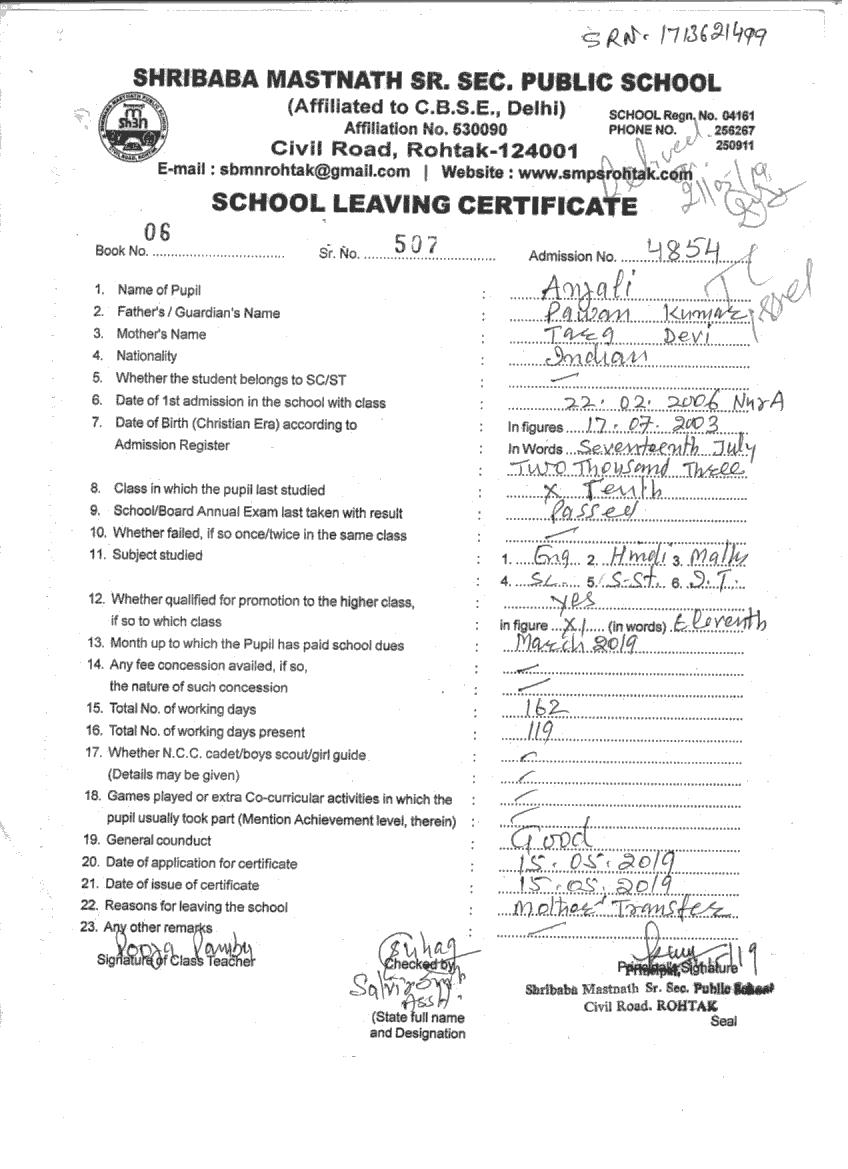 SRN. 1713621499
SHRIBABA MASTNATH SR. SEC. PUBLIC SCHOOL
(Affiliated to C.B.S.E., Delhi)
Affiliation No. 530090
SCHOOL Regn. No. 04161
PHONE NO. 256267
250911
Civil Road, Rohtak-124001
E-mail : sbmnrohtak@gmail.com | Website : www.smpsrohtak.com
SCHOOL LEAVING CERTIFICATE
Book No. 06 Sr. No. 507 Admission No. 4854
1. Name of Pupil : Anjali
2. Father's / Guardian's Name : Pawan Kumar
3. Mother's Name : Tara Devi
4. Nationality : Indian
5. Whether the student belongs to SC/ST :
6. Date of 1st admission in the school with class : 22. 02. 2006 NurA
7. Date of Birth (Christian Era) according to : In figures 17. 07. 2003
Admission Register : In Words Seventeenth July
: Two Thousand Three
8. Class in which the pupil last studied : X Tenth
9. School/Board Annual Exam last taken with result : Passed
10. Whether failed, if so once/twice in the same class :
11. Subject studied : 1. Eng 2. Hindi 3. Maths
4. Sc 5. S-St 6. I.T.
12. Whether qualified for promotion to the higher class, : yes
if so to which class : in figure XI (in words) Eleventh
13. Month up to which the Pupil has paid school dues : March 2019
14. Any fee concession availed, if so, :
the nature of such concession :
15. Total No. of working days : 162
16. Total No. of working days present : 119
17. Whether N.C.C. cadet/boys scout/girl guide :
(Details may be given) :
18. Games played or extra Co-curricular activities in which the :
pupil usually took part (Mention Achievement level, therein) :
19. General counduct : Good
20. Date of application for certificate : 15. 05. 2019
21. Date of issue of certificate : 15. 05. 2019
22. Reasons for leaving the school : Mother Transfer
23. Any other remarks :
Signature of Class Teacher
Checked by
Principal's Signature
Shribaba Mastnath Sr. Sec. Public School
Civil Road. ROHTAK
(State full name
and Designation
Seal